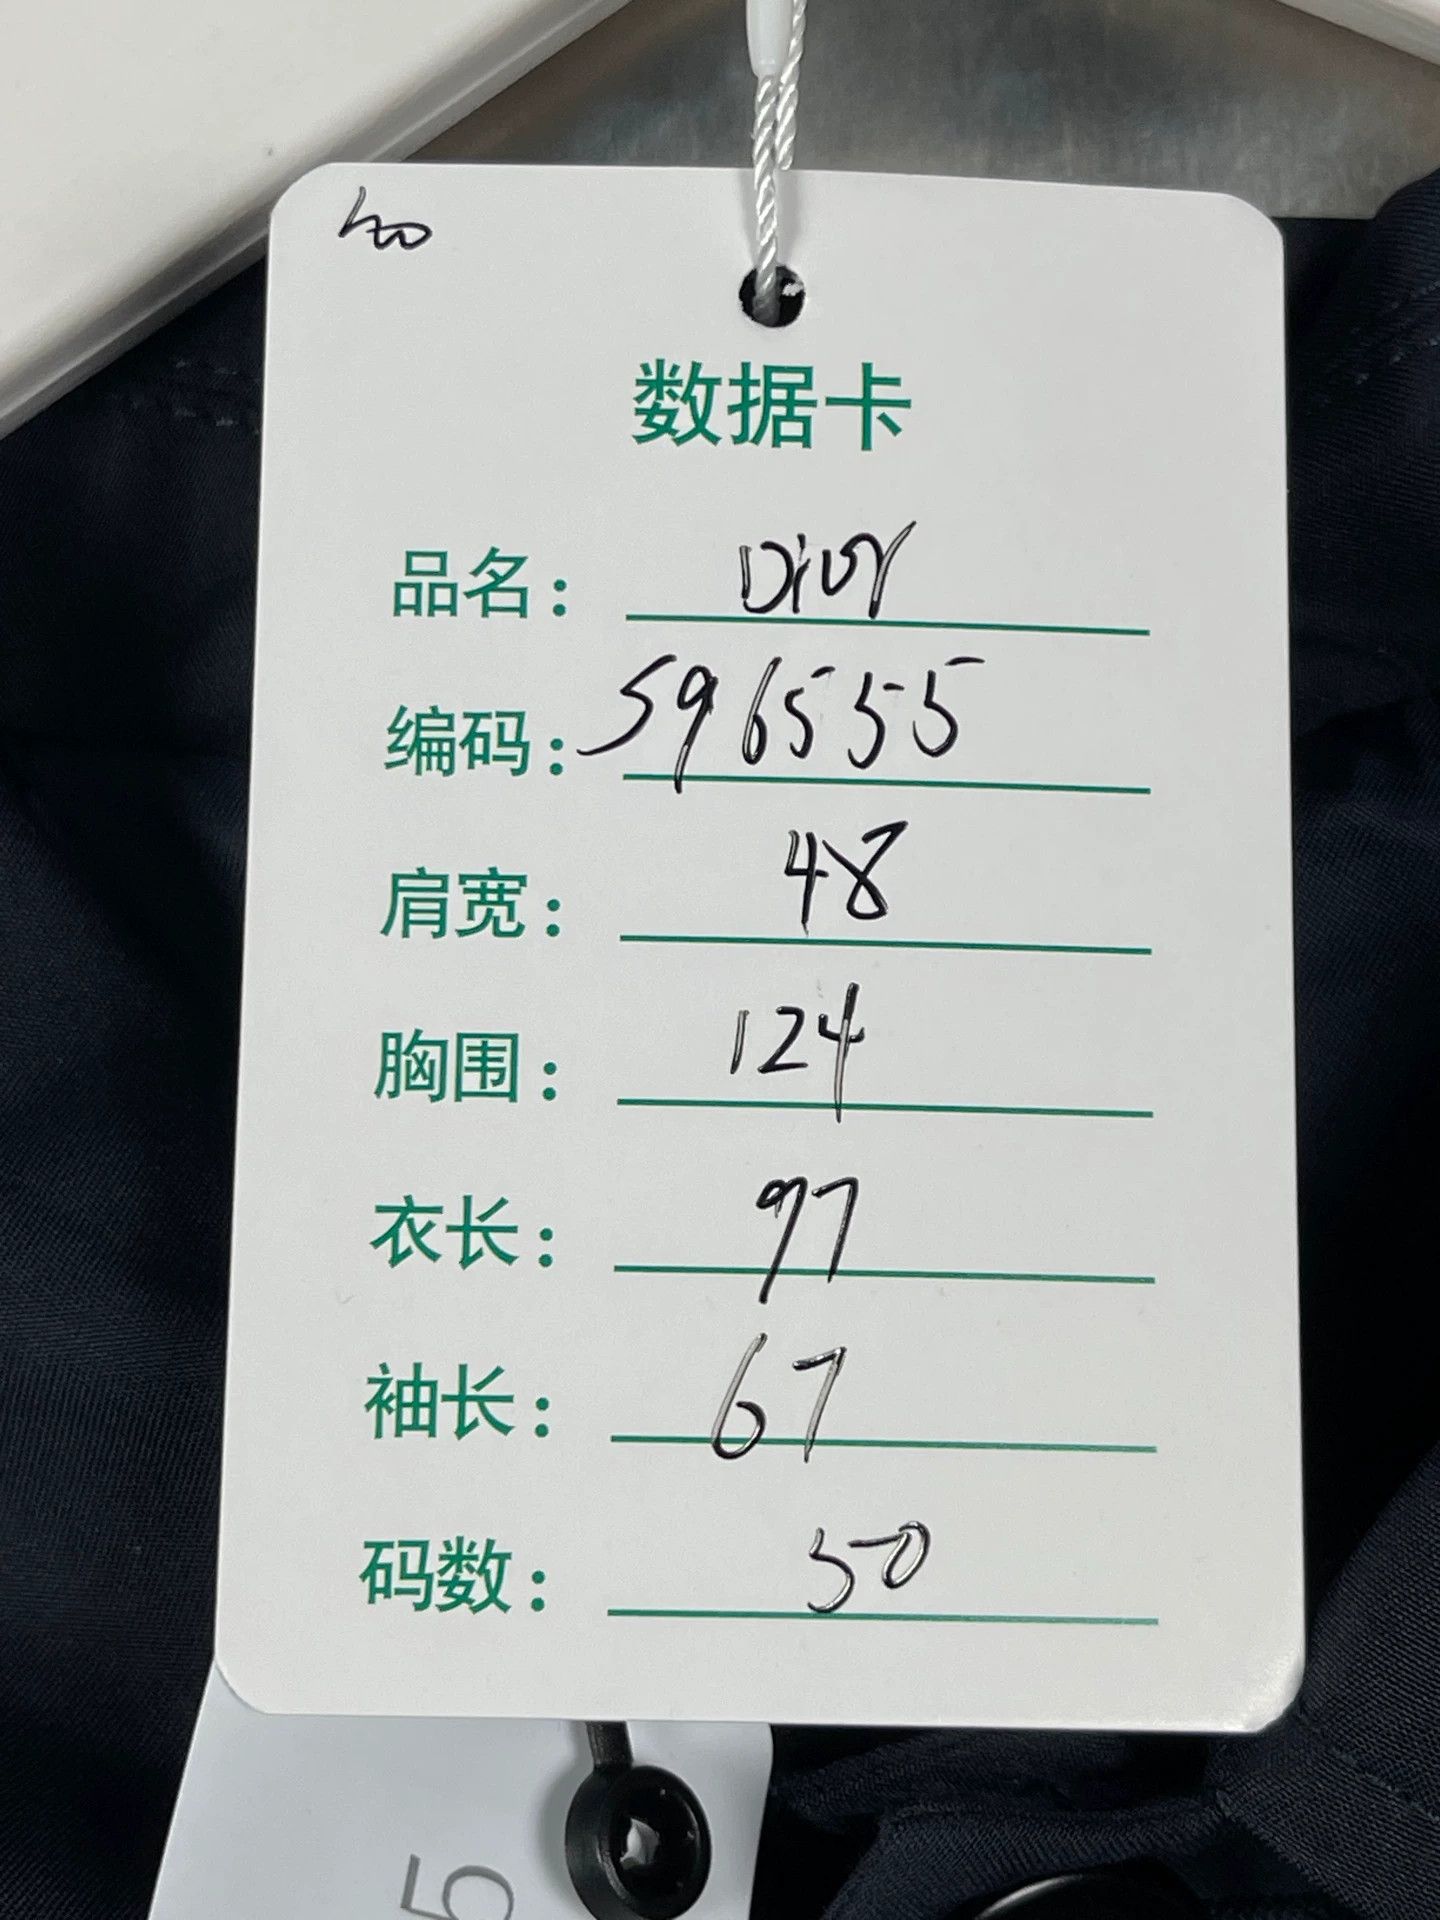 数据卡
品名： Dior
编码： 596555
肩宽： 48
胸围： 124
衣长： 97
袖长： 67
码数： 50
5